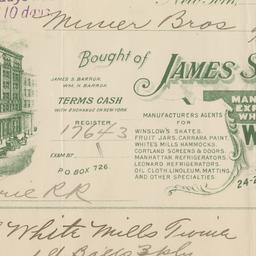 10 days
Bought of
JAMES S
JAMES S. BARRON.
WM. H. BARRON.
TERMS CASH
WITH EXCHANGE ON NEW YORK
REGISTER
17643
EXAM BY
P.O. BOX 726.
MANUFACTURERS AGENTS
FOR
WINSLOW'S SKATES.
FRUIT JARS, CARRARA PAINT.
WHITES MILLS HAMMOCKS.
CORTLAND SCREENS & DOORS.
MANHATTAN REFRIGERATORS.
LEONARD REFRIGERATORS.
OIL CLOTH, LINOLEUM, MATTING
AND OTHER SPECIALTIES
MAN
EX
WH
W
24-2
RR
White Mills Twine
Bales 3 ply